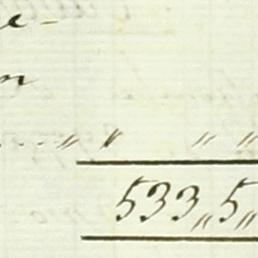 e-
n
.... „ „ „ „
533„5„